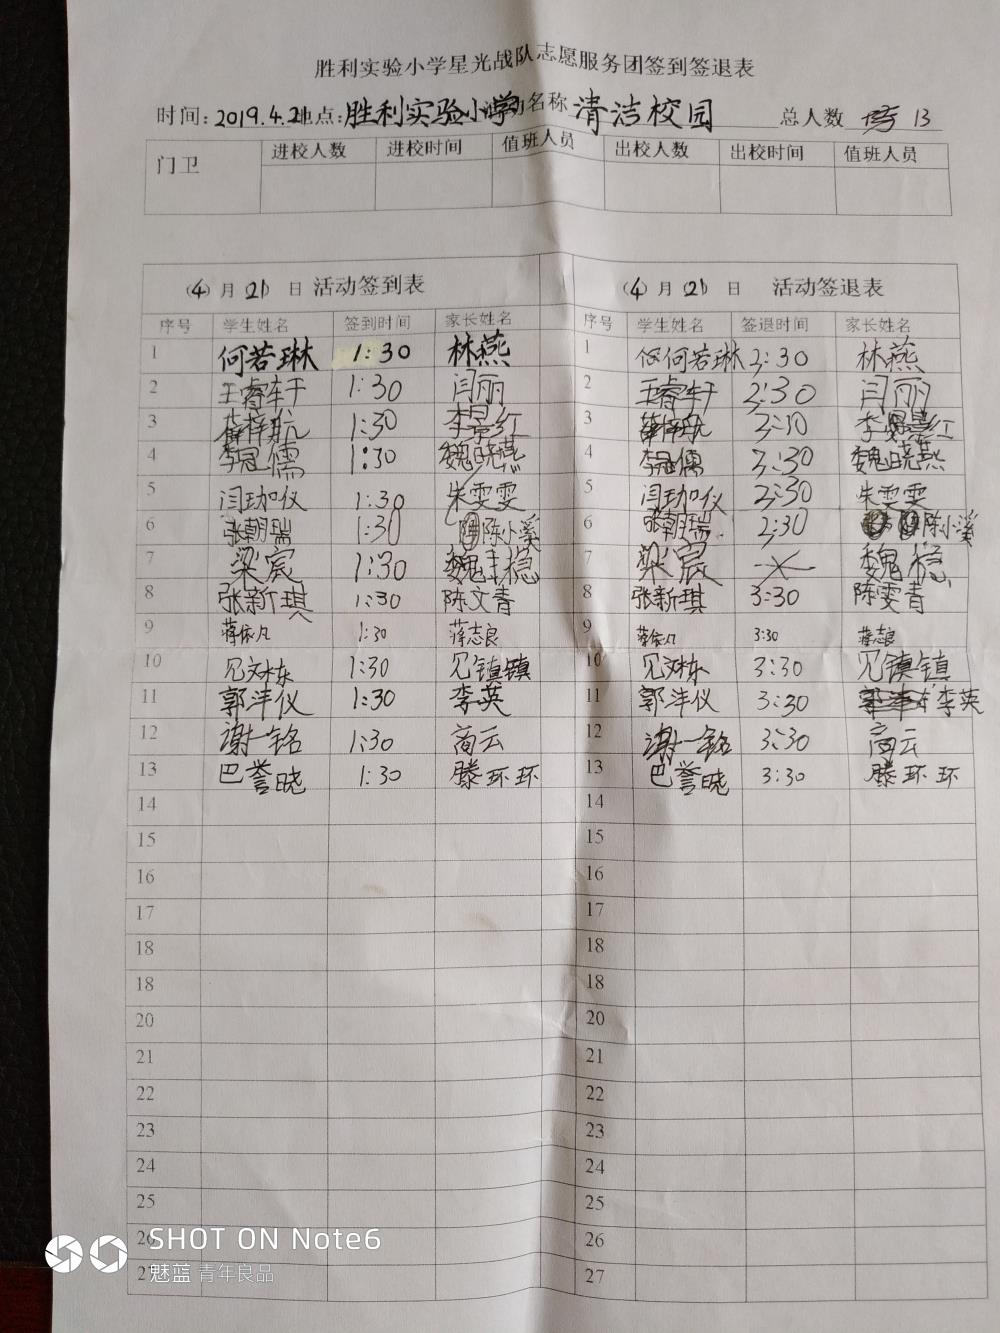 胜利实验小学星光战队志愿服务团签到签退表
时间:2019.4.21地点:胜利实验小学 名称 清洁校园 总人数 13
门卫 进校人数 进校时间 值班人员 出校人数 出校时间 值班人员
(4)月(21)日 活动签到表 (4)月(21)日 活动签退表
序号 学生姓名 签到时间 家长姓名 序号 学生姓名 签退时间 家长姓名
1 何若琳 1:30 林燕 1 何若琳 3:30 林燕
2 王睿轩 1:30 闫丽 2 王睿轩 3:30 闫丽
3 薛梓航 1:30 李景红 3 薛梓航 3:30 李景红
4 李冠儒 1:30 魏晓燕 4 李冠儒 3:30 魏晓燕
5 闫珈仪 1:30 朱雯雯 5 闫珈仪 3:30 朱雯雯
6 张朝瑞 1:30 陈小溪 6 张朝瑞 3:30 陈小溪
7 梁宸 1:30 魏稳 7 梁宸 魏稳
8 张新琪 1:30 陈文青 8 张新琪 3:30 陈雯青
9 蒋依凡 1:30 蒋志良 9 蒋依凡 3:30 蒋志良
10 见刘栋 1:30 见镇镇 10 见刘栋 3:30 见镇镇
11 郭沣仪 1:30 李英 11 郭沣仪 3:30 李英
12 谢一铭 1:30 商云 12 谢一铭 3:30 商云
13 巴誉晓 1:30 滕环环 13 巴誉晓 3:30 滕环环
14 14
15 15
16 16
17 17
18 18
18 18
20 20
21 21
22 22
23 23
24 24
25 25
26 26
27 27
SHOT ON Note6
魅蓝 青年良品